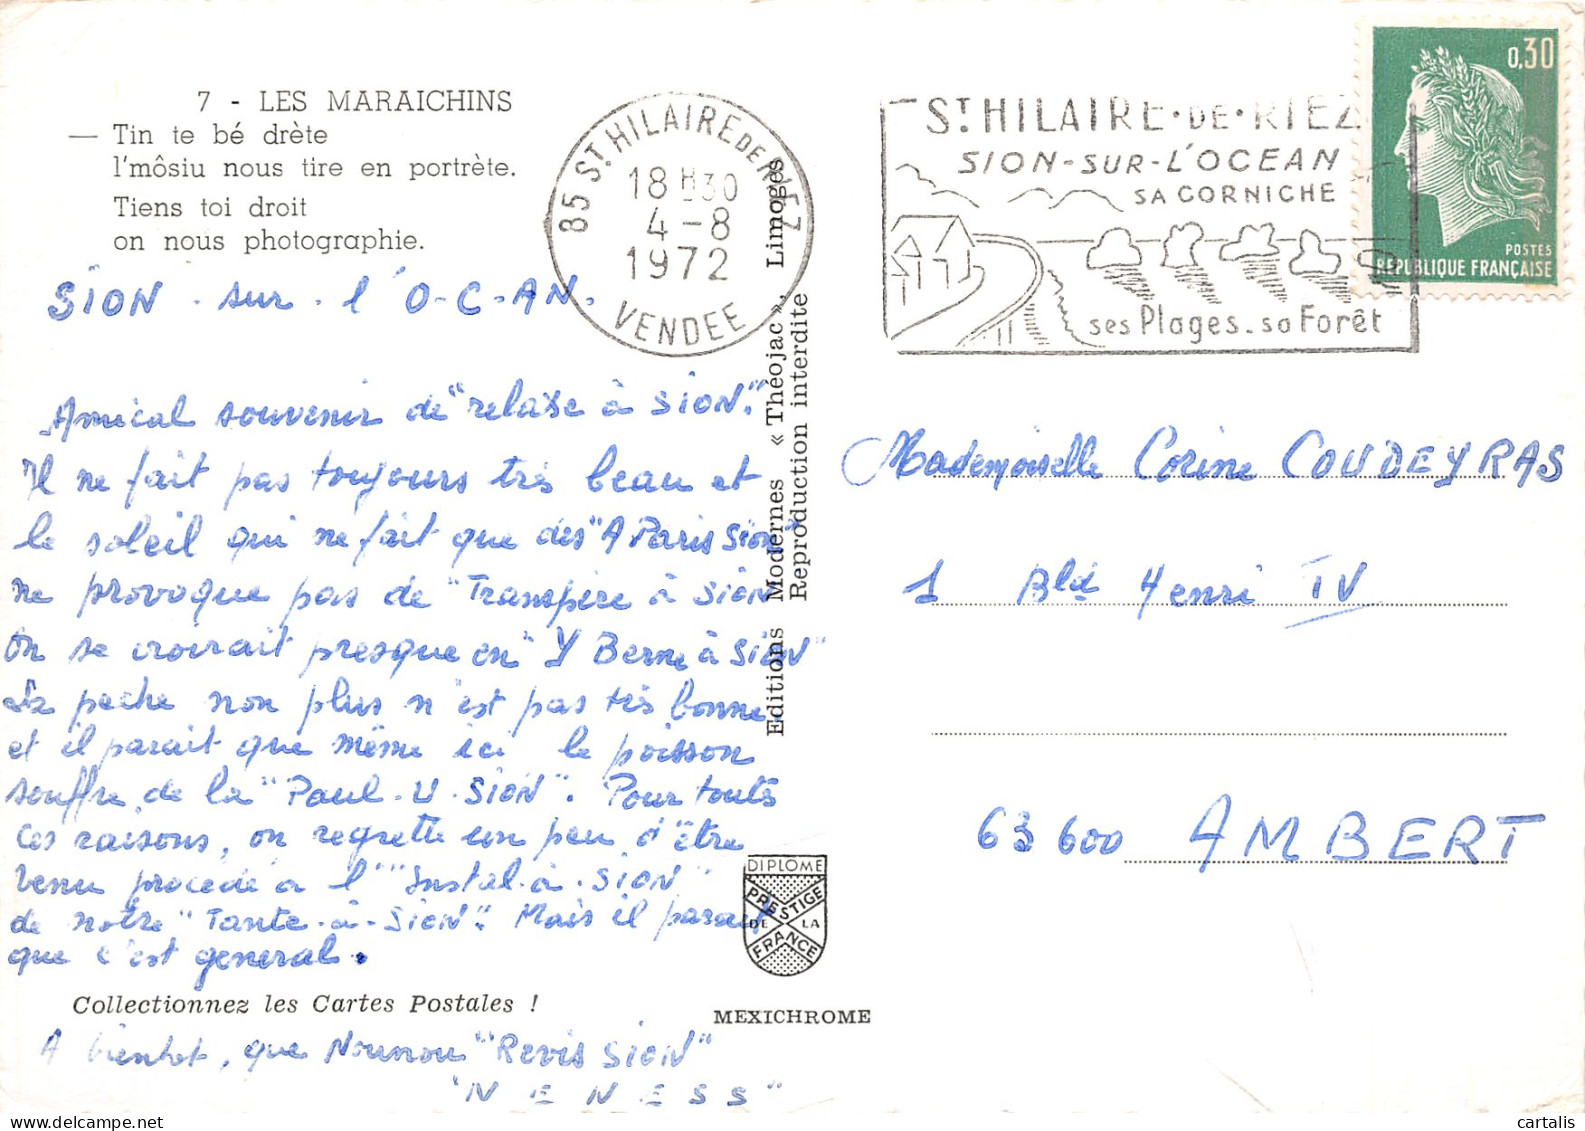 7 - LES MARAICHINS
— Tin te bé drète
l'môsiu nous tire en portrète.
Tiens toi droit
on nous photographie.
SION - sur - l'O-C-AN.
Amical souvenir de "relaxe à SION".
Il ne fait pas toujours très beau et
le soleil qui ne fait que des "A Paris Sion"
ne provoque pas de "Transpire à Sion"
On se croirait presque en "Y Berne à Sion"
La peche non plus n'est pas très bonne
et il parait que même ici le poisson
souffre de la "Paul-U-SION". Pour toutes
ces raisons, on regrette un peu d'être
venu procédé à l'"Instal-à-SION"
de notre "Tante-à-SION". Mais il parait
que c'est general.
Collectionnez les Cartes Postales !
A bientot, que Nounou "Revis SION"
"NENESS"
85 ST HILAIRE DE RIEZ
18 H30
4-8
1972
VENDEE
Editions Modernes « Théojac », Limoges
Reproduction interdite
DIPLOME
PRESTIGE
DE LA
FRANCE
MEXICHROME
ST HILAIRE·DE·RIEZ
SION-SUR-L'OCEAN
SA CORNICHE
ses Plages - sa Forêt
0,30
POSTES
REPUBLIQUE FRANÇAISE
Mademoiselle Corine COUDEYRAS
1 Bld Henri IV
63600 AMBERT
© cartalis delcampe.net